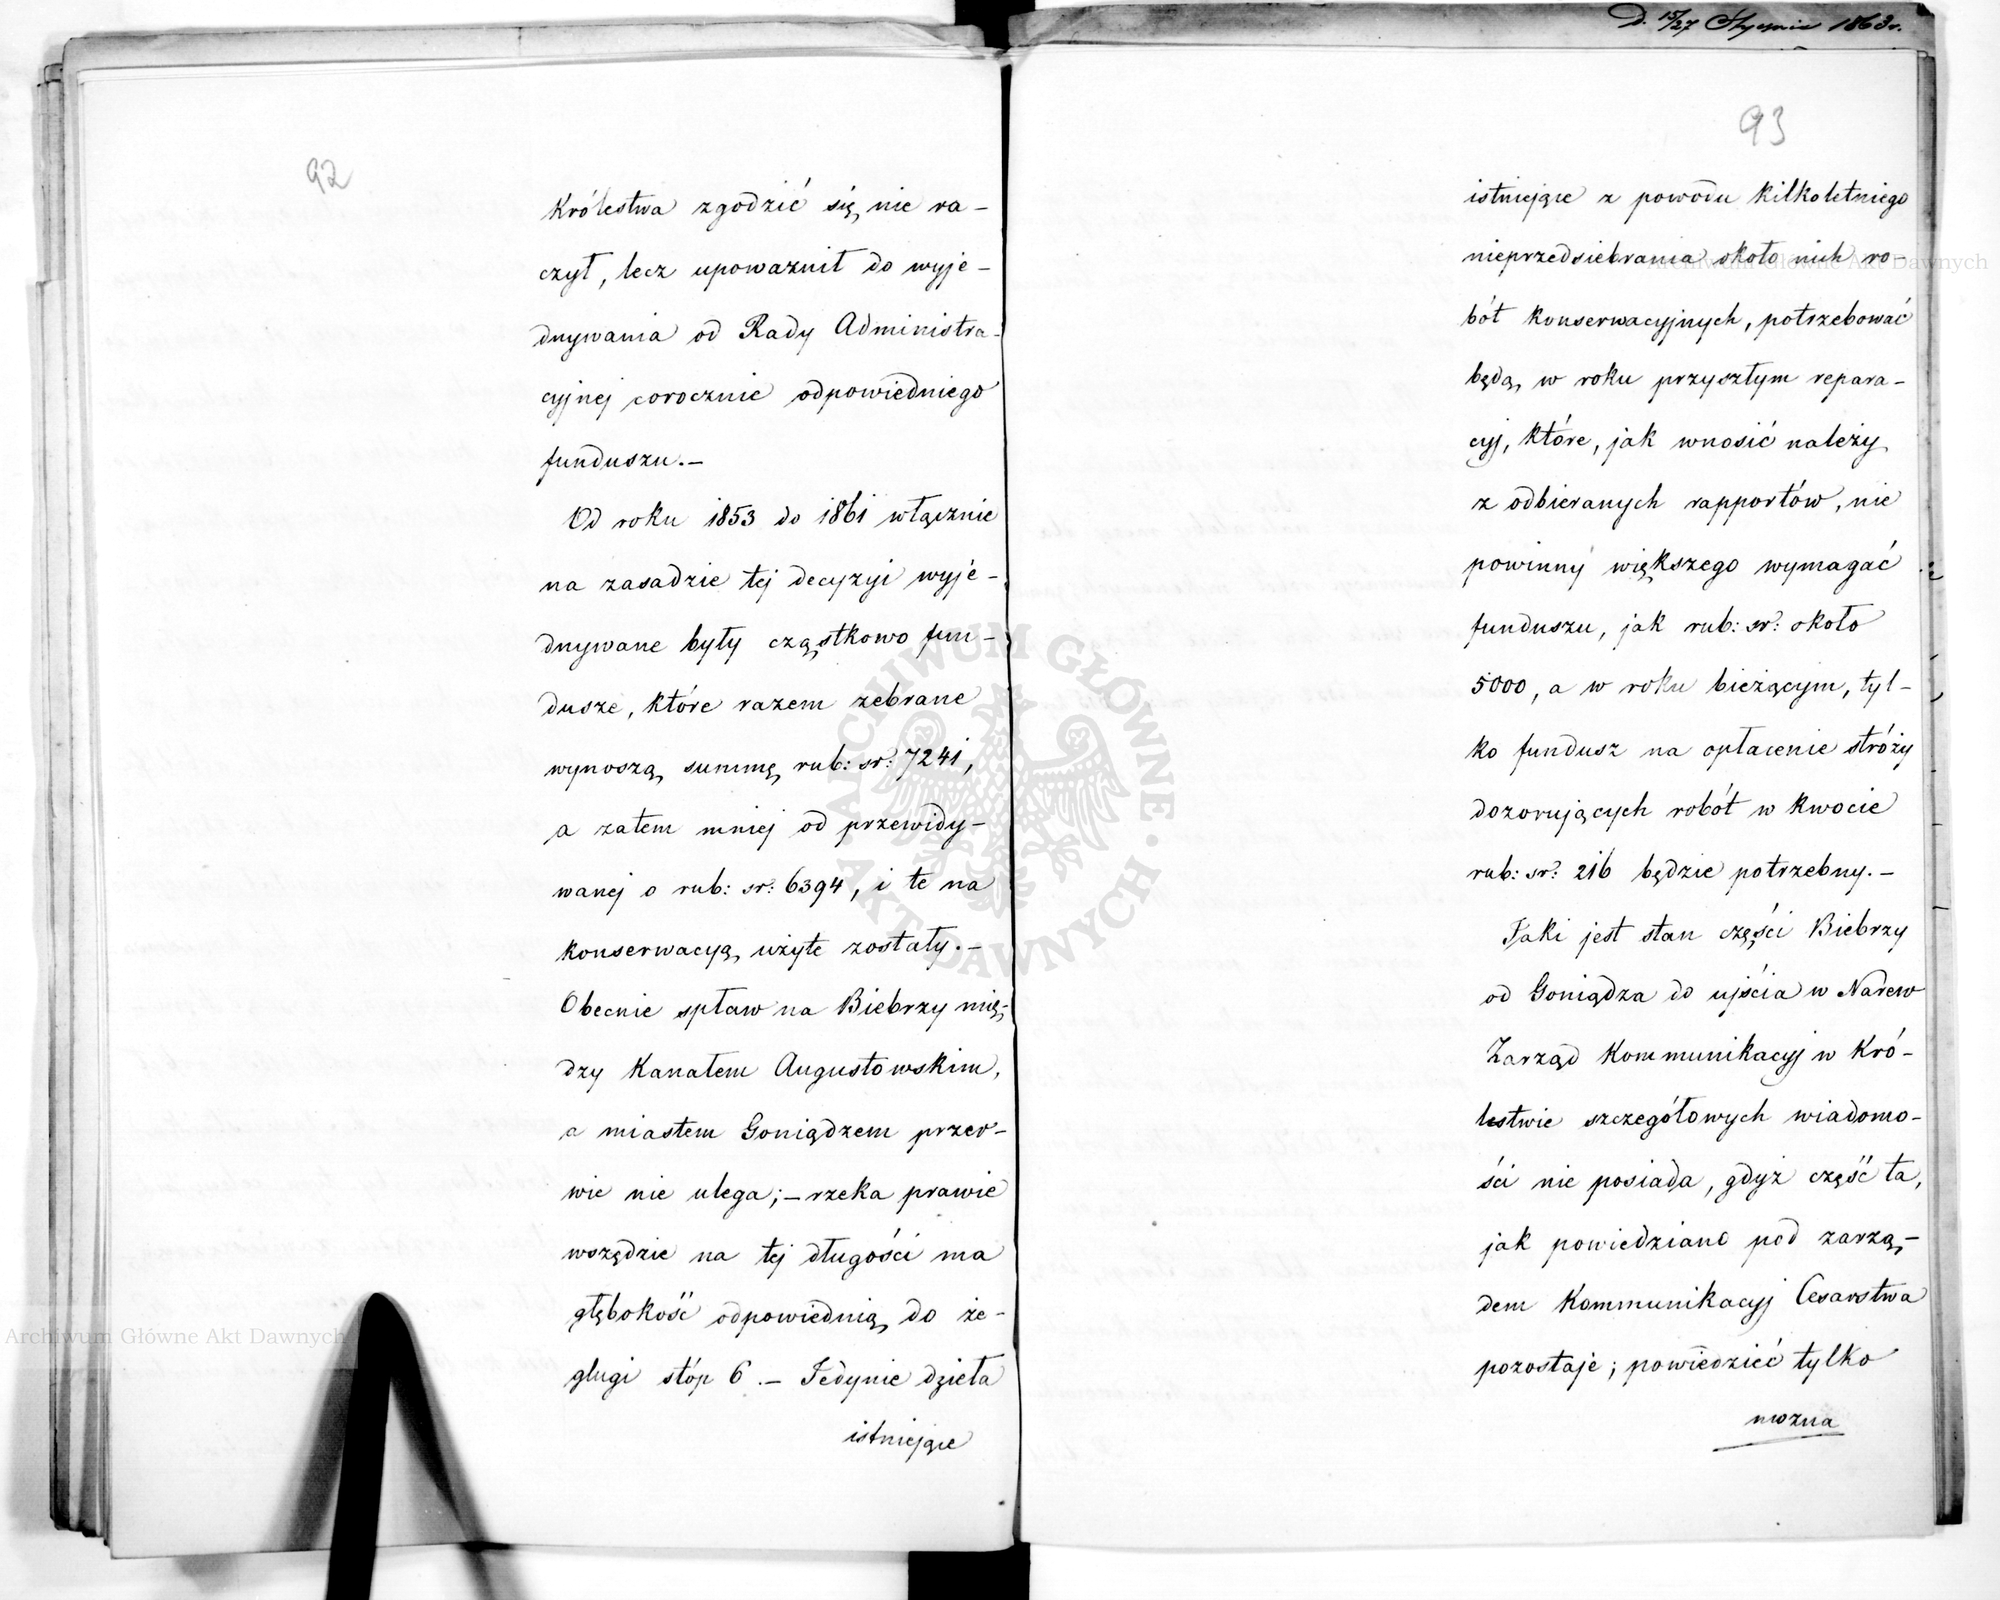 92
Królestwa zgodzić się nie ra-
czył, lecz upoważnił do wyje-
dnywania od Rady Administra-
cyjnej corocznie odpowiedniego
funduszu.-
Od roku 1853 do 1861 włącznie
na zasadzie tej decyzyi wyje-
dnywane były cząstkowo fun-
dusze, które razem zebrane
wynoszą summę rub: sr: 7241,
a zatem mniej od przewidy-
wanej o rub: sr: 6394, i te na
konserwacyą użyte zostały.-
Obecnie spław na Biebrzy mię-
dzy Kanałem Augustowskim,
a miastem Goniądzem przer-
wie nie ulega;- rzeka prawie
wszędzie na tej długości ma
głębokość odpowiednią do że-
glugi stóp 6.- Jedynie dzieła
istniejące
D. 15/27 Stycznia 1863 r.
93
istniejące z powodu kilkoletniego
nieprzedsiebrania około nich ro-
bót konserwacyjnych, potrzebować
będą w roku przyszłym repara-
cyj, które, jak wnosić należy
z odbieranych rapportów, nie
powinny większego wymagać
funduszu, jak rub: sr: około
5000, a w roku bieżącym, tyl-
ko fundusz na opłacenie stróży
dozorujących robót w kwocie
rub: sr: 216 będzie potrzebny.-
Jaki jest stan części Biebrzy
od Goniądza do ujścia w Narew
Zarząd Kommunikacyj w Kró-
lestwie szczegółowych wiadomo-
ści nie posiada, gdyż część ta,
jak powiedziano pod zarzą-
dem Kommunikacyj Cesarstwa
pozostaje; powiedzieć tylko
można
ARCHIWUM GŁÓWNE AKT DAWNYCH
Archiwum Główne Akt Dawnych
Archiwum Główne Akt Dawnych